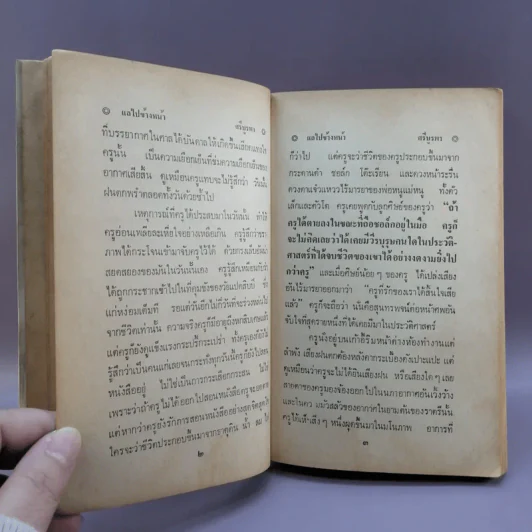 ๏ แลไปข้างหน้า ศรีบูรพา ๏
ที่บรรยากาศในศาลได้บันดาลให้เกิดขึ้นเสียดแทงใจ
ครูนั้น เป็นความเยือกเย็นที่ข่มความเยือกเย็นของ
อากาศเสียสิ้น ดูเหมือนครูแทบจะไม่รู้สึกว่า วันนั้น
ฝนตกพรำตลอดทั้งวันด้วยซ้ำไป
เหตุการณ์ที่ครูได้ประสบมาในวันนั้น ทำให้
ครูอ่อนเพลียละเหี่ยใจอย่างเหลือเกิน ครูรู้สึกราวกะ
ภาพได้กระโจนเข้ามาจับครูไว้ได้
สอดสลองของมันในวันนั้นเอง ครูรู้สึกเหมือนกับว่า
ได้ถูกกระชากเข้าไปในที่คุมขังของวัยแปดสิบปี
แก่หง่อมเต็มที รอแต่วันอีกไม่กี่วันที่จะร่วงหล่นไป
จากชีวิตเท่านั้น ความจริงครูก็มีอายุถึงหกสิบเศษแล้ว
แต่ครูก็ยังดูแข็งแรงกระปรี้กระเปร่า
รู้สึกว่าเป็นคนแก่เลยจนกระทั่งทุกวันนี้ครูก็ยังไปสอน
หนังสืออยู่ ไม่ใช่เป็นการกระเสือกกระสน ไม่ใช่
เพราะว่าถ้าครูไม่ได้ออกไปสอนหนังสือครูจะอดตาย
แต่หากว่าครูยังรักการสอนหนังสืออย่างสุดจิตสุดใจ
ใครจะว่าชีวิตประกอบขึ้นมาจากธาตุดิน น้ำ ลม ไฟ
๒
๏ แลไปข้างหน้า ศรีบูรพา ๏
ก็ว่าไป แต่ครูจะว่าชีวิตของครูประกอบขึ้นมาจาก
กระดานดำ ชอล์ก โต๊ะเรียน และดวงหน้าระรื่น
ดวงตาแจ๋วแหววไร้มารยาของพ่อหนูแม่หนู ทั้งตัว
เล็กและตัวโต ครูเคยพูดกับลูกศิษย์ของครูว่า “ถ้า
ครูได้ตายลงในขณะที่ถือชอล์กอยู่ในมือ ครูก็
จะไม่คิดเลยว่าได้เคยมีวีรบุรุษคนใดในประวัติ-
ศาสตร์ที่ได้จบชีวิตของเขาได้อย่างงดงามยิ่งไป
กว่าครู” และเมื่อศิษย์น้อยๆ ของครู ได้เปล่งเสียง
อันไร้มารยาออกมาว่า “ครูที่รักของเราได้สิ้นใจเสีย
แล้ว” ครูก็จะถือว่า นั่นคือสุนทรพจน์ต่อหน้าศพอัน
จับใจที่สุดรายหนึ่งที่ได้เคยมีมาในประวัติศาสตร์
ครูนั่งอยู่บนเก้าอี้ริมหน้าต่างห้องทำงานแต่
ลำพัง เสียงฝนตกต้องหลังคากระเบื้องดังเปาะแปะ แต่
ดูเหมือนว่าครูจะไม่ได้ยินเสียงฝน หรือเสียงใดๆ เลย
สายตาของครูมองจ้องออกไปในนภาอากาศอันเวิ้งว้าง
และในดวง แม้วสลัวของอากาศในยามต้นของราตรีนั้น
ครูได้เห็นสิ่งๆ หนึ่งผุดขึ้นมาในมโนภาพ อาการที่
๓